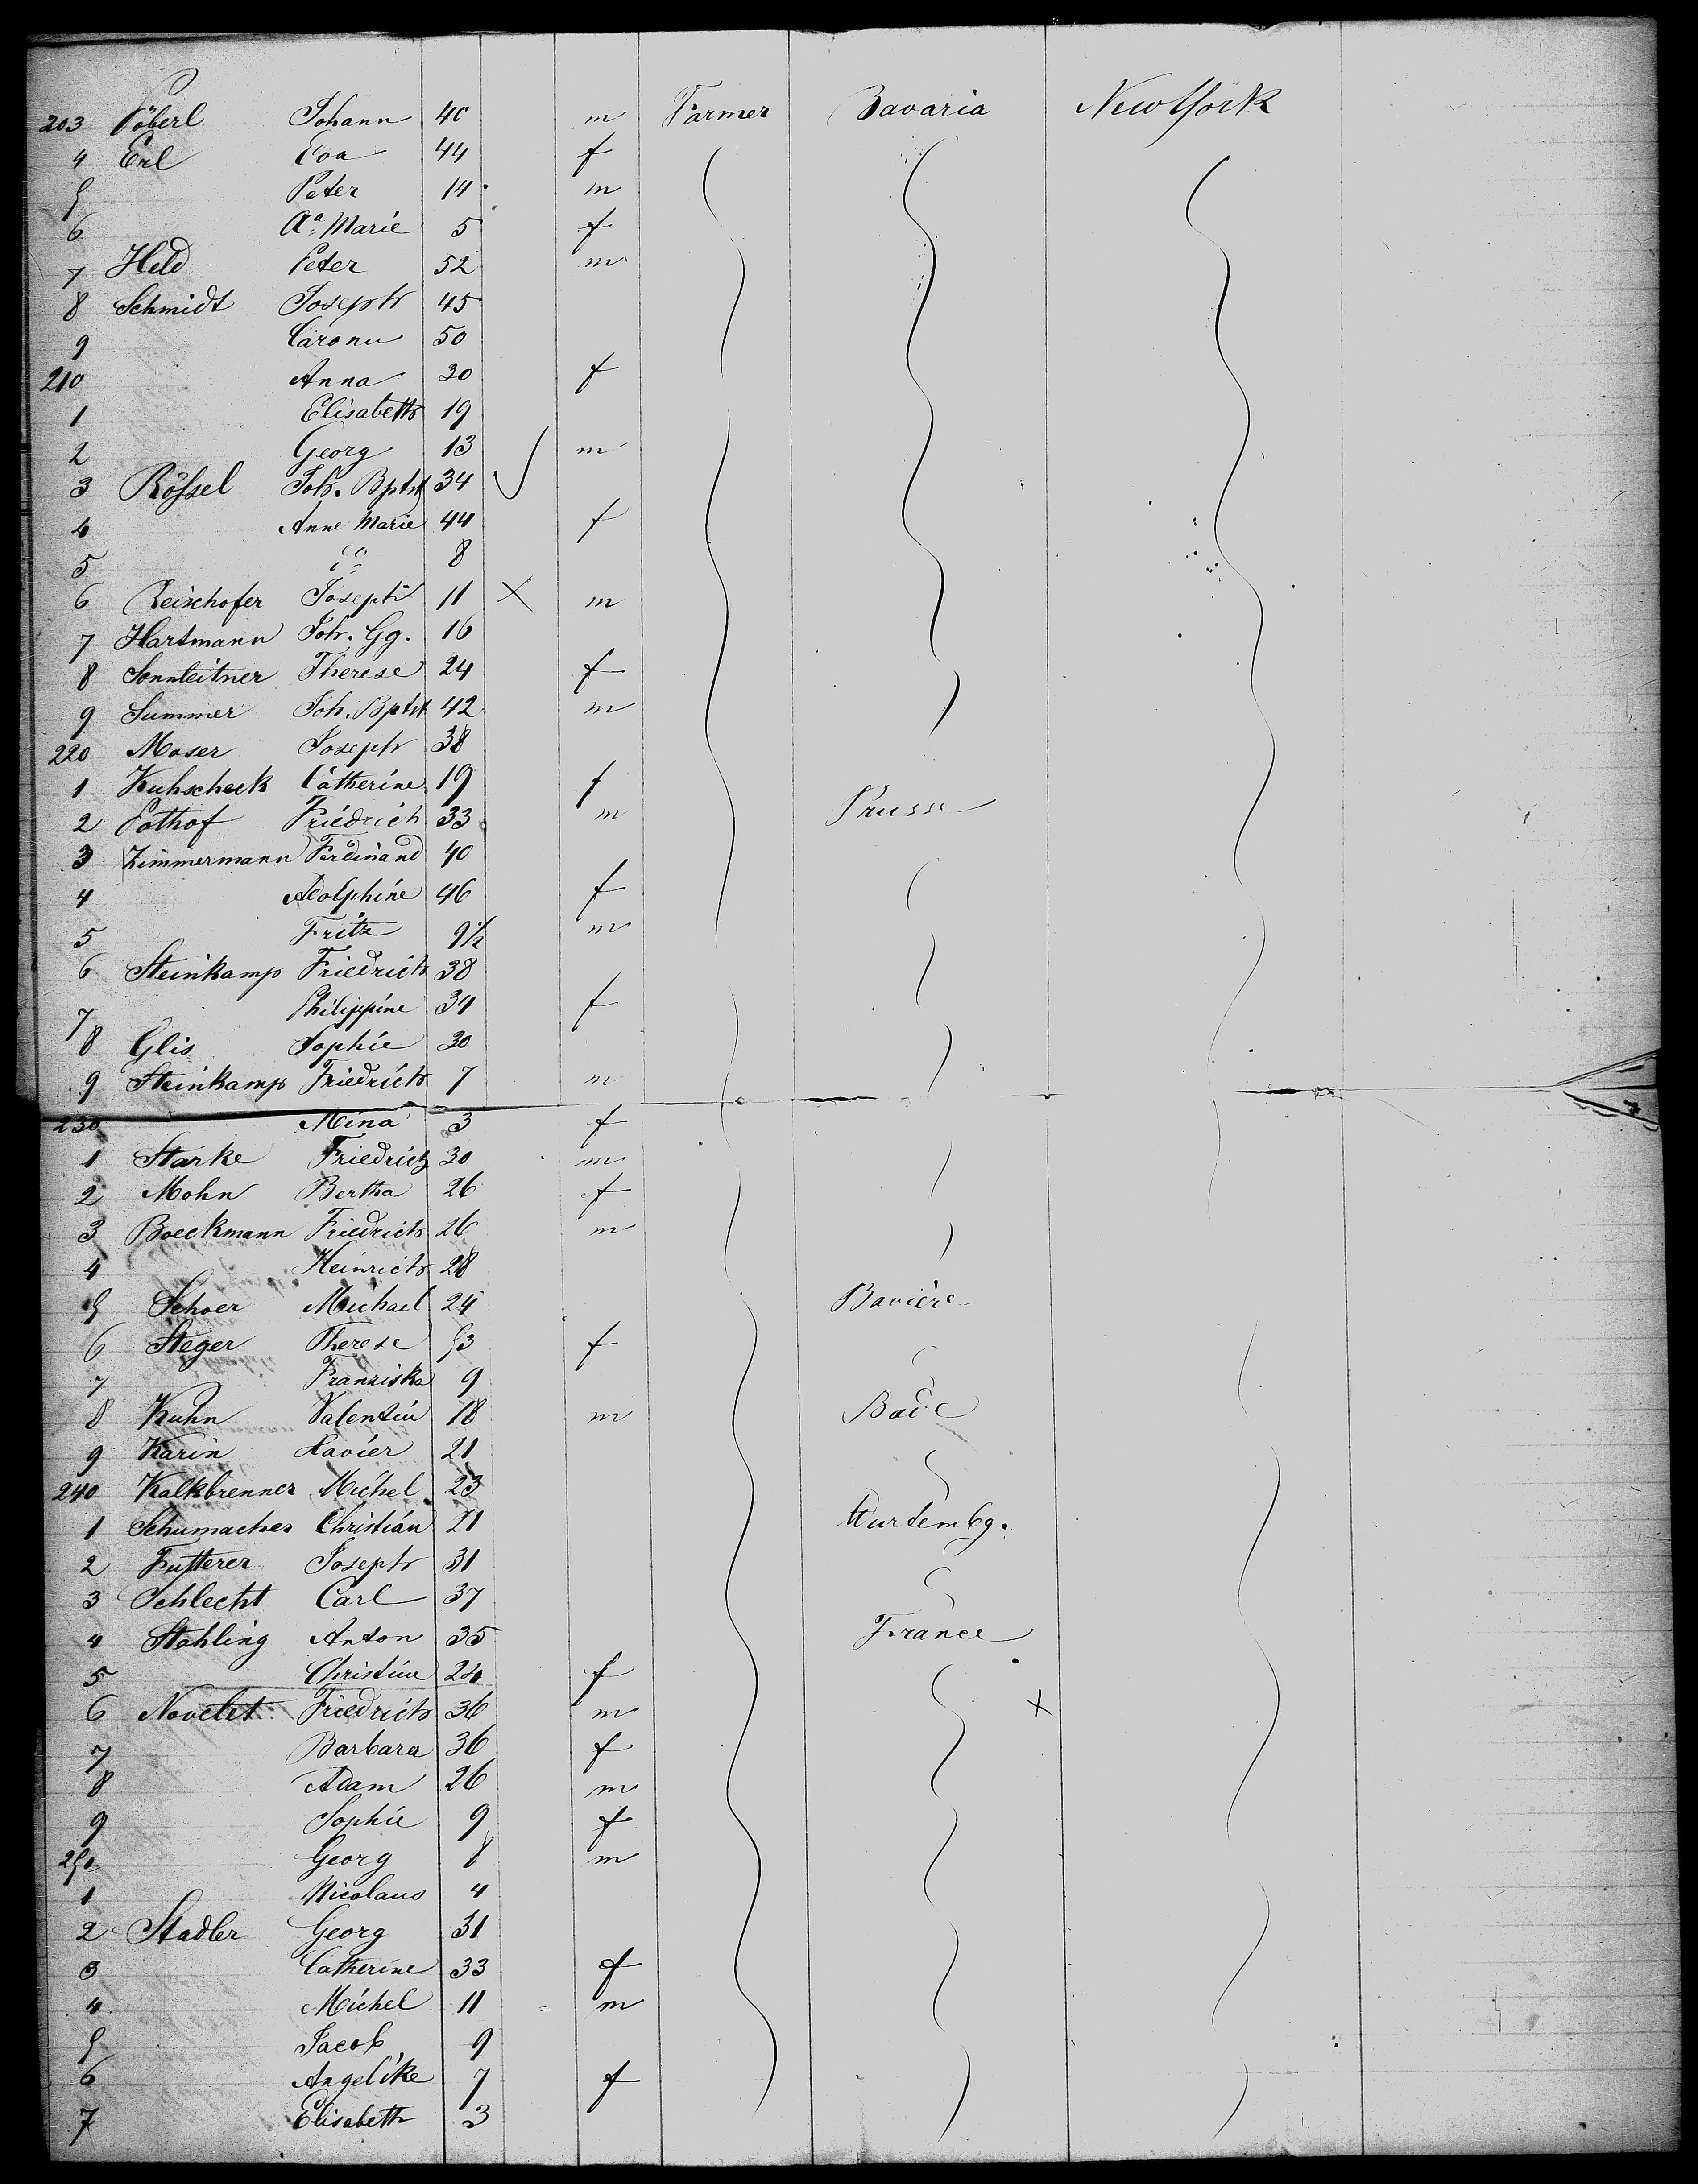 203 Pöberl Johann 40 m Farmer Bavaria New York
4 Erl Eva 44 f
5 Peter 14 m
6 Aª Marie 5 f
7 Held Peter 52 m
8 Schmidt Joseph 45
9 50
210 Anna 30 f
1 Elisabeth 19
2 Georg 13 m
3 Rößel Joh. Bptst 34
4 Anne Marie 44 f
5 " 8
6 Reischofer Joseph 11 X m
7 Hartmann Joh. Gg. 16
8 Sonnleitner Therese 24 f
9 Summer Joh. Bptst 42 m
220 Moser Joseph 38
1 Kuhscheck Catherine 19 f
2 Pothof Friedrich 33 m Prusse
3 Zimmermann Ferdinand 40
4 Adolphine 46 f
5 Fritz 9½ m
6 Steinkamp Friedrich 38
7 Philippine 34 f
8 Glis Sophie 30
9 Steinkamp Friedrich 7 m
230 Mina 3 f
1 Starke Friedrich 30 m
2 Mohn Bertha 26 f
3 Boeckmann Friedrich 26 m
4 Heinrich 28
5 Schoer Michael 24 Bavière
6 Steger Therese 53 f
7 Franziska 9
8 Kuhn Valentin 18 m Bade
9 Karin Xavier 21
240 Kalkbrenner Michel 23
1 Schumacher Christian 21 Wurtembg.
2 Futterer Joseph 31
3 Schlecht Carl 37
4 Stahling Anton 35 France
5 Christine 24 f
6 Novelet Friedrich 36 m X
7 Barbara 36 f
8 Adam 26 m
9 Sophie 9 f
250 Georg 8 m
1 Nicolaus 4
2 Stadler Georg 31
3 Catherine 33 f
4 Michel 11 m
5 Jacob 9
6 Angelike 7 f
7 Elisabeth 3